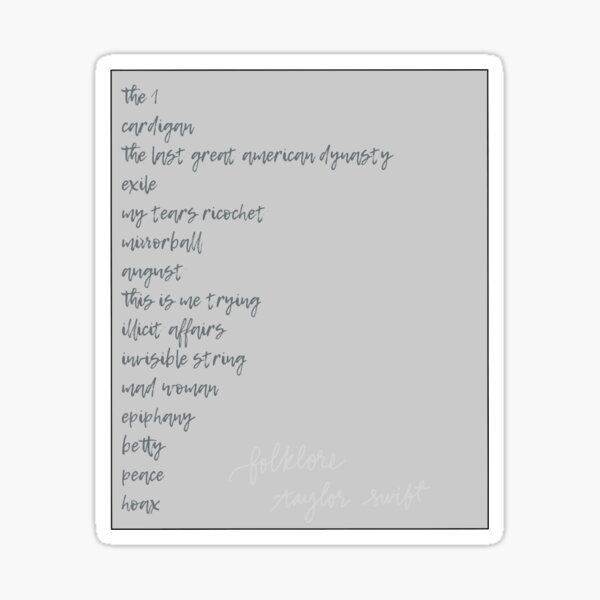 the 1
cardigan
the last great american dynasty
exile
my tears ricochet
mirrorball
august
this is me trying
illicit affairs
invisible string
mad woman
epiphany
betty
peace
hoax
folklore
taylor swift